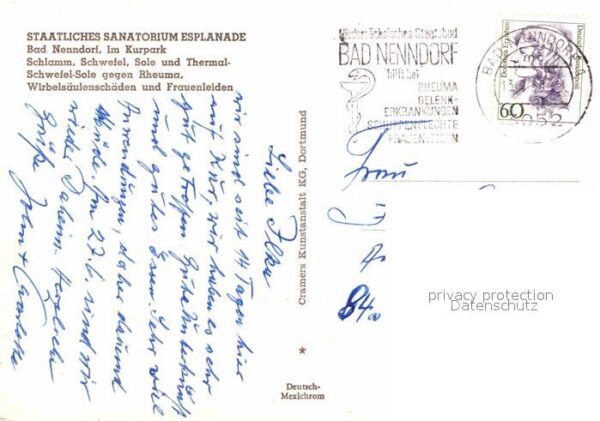 STAATLICHES SANATORIUM ESPLANADE
Bad Nenndorf, Im Kurpark
Schlamm, Schwefel, Sole und Thermal-
Schwefel-Sole gegen Rheuma,
Wirbelsäulenschäden und Frauenleiden
Liebe Ilka
wir sind seit 14 Tagen hier
auf Kur, wir haben es sehr
gut getroffen, Gute Unterkunft
und gutes Essen. Sehr viel
Anwendungen, daher dauernd
Müde. Am 27.6. sind wir
wieder Daheim. Herzliche
Grüße
Cramers Kunstanstalt KG, Dortmund
★
Deutsch-
Mexichrom
Niedersächsisches Staatsbad
BAD NENNDORF
hilft bei
RHEUMA
GELENK-
ERKRANKUNGEN
SCHUPPENFLECHTE
FRAUENLEIDEN
BAD NENNDORF
3052
60
Deutsche Bundespost
Frau
84
privacy protection
Datenschutz